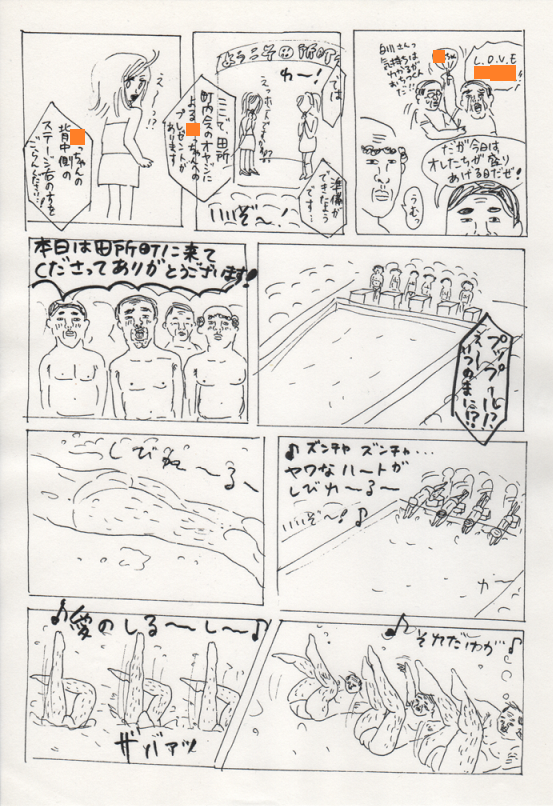 白川さんっ
気持ちは
わかるが
おちつくん
だっ…!!
ちゃん
L.O.V.E
だが今日は
オレたちが盛り
あげる日だぜ!
うむっ
ようこそ田所町
わー!
では
準備が
できたよう
です…
ここで、田所
町内会のオヤジに
よる
っちゃんへの
プレゼントが
あります!
いいぞ〜!
え…!?
っちゃんの
背中側の
ステージ右の方を
ごらんください!!
本日は田所町に来て
くださってありがとうございます!
プップール!?
えーー
いつのまに!?
♪ズンチャ ズンチャ…
ヤワなハートが
しびれ〜る〜
いいぞ〜!♪
しびれ〜る〜
♪それだけが♪
♪愛のしる〜〜し〜〜♪
ザバアッ